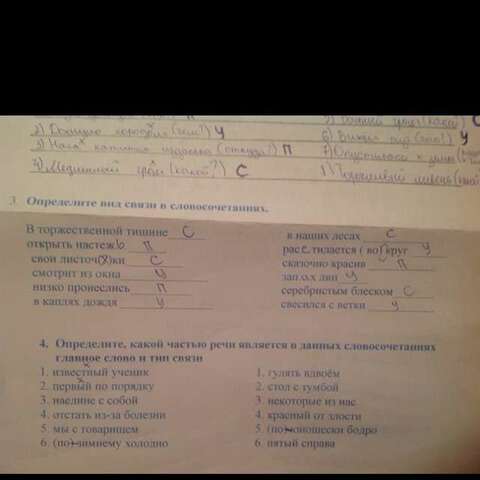 2) Дышало городом (чем?) У
6) Вижу (что?) У
3) Насл капишно издалека (откуда?) П
7) Опустилась к земле
4) Медлительный гром (какой?) С
3. Определите вид связи в словосочетаниях.
В торжественной тишине С
в наших лесах С
открыть настежь П
расстилается (во)круг У
свои листоч(х)ки С
сказочно красив П
смотрит из окна У
запах лип У
низко пронеслись П
серебристым блеском С
в каплях дождя У
свесился с ветки У
4. Определите, какой частью речи является в данных словосочетаниях
главное слово и тип связи
1. известный ученик
1. гулять вдвоём
2. первый по порядку
2. стол с тумбой
3. наедине с собой
3. некоторые из нас
4. отстать из-за болезни
4. красный от злости
5. мы с товарищем
5. (по)юношески бодро
6. (по)зимнему холодно
6. пятый справа